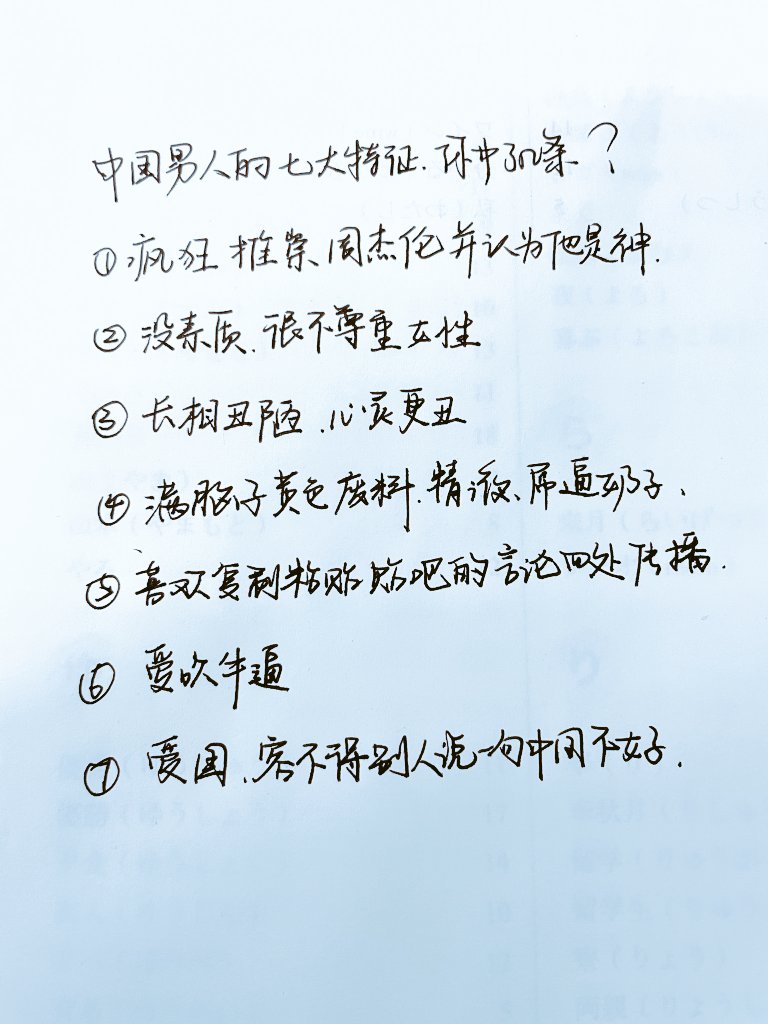 中国男人的七大特征、你中了几条？
①疯狂推崇周杰伦并认为他是神.
②没素质、很不尊重女性
③长相丑陋、心灵更丑
④满脑子黄色废料、精液、屌逼奶子、
⑤喜欢复制粘贴贴吧的言论四处传播.
⑥爱吹牛逼
⑦爱国、容不得别人说一句中国不好.